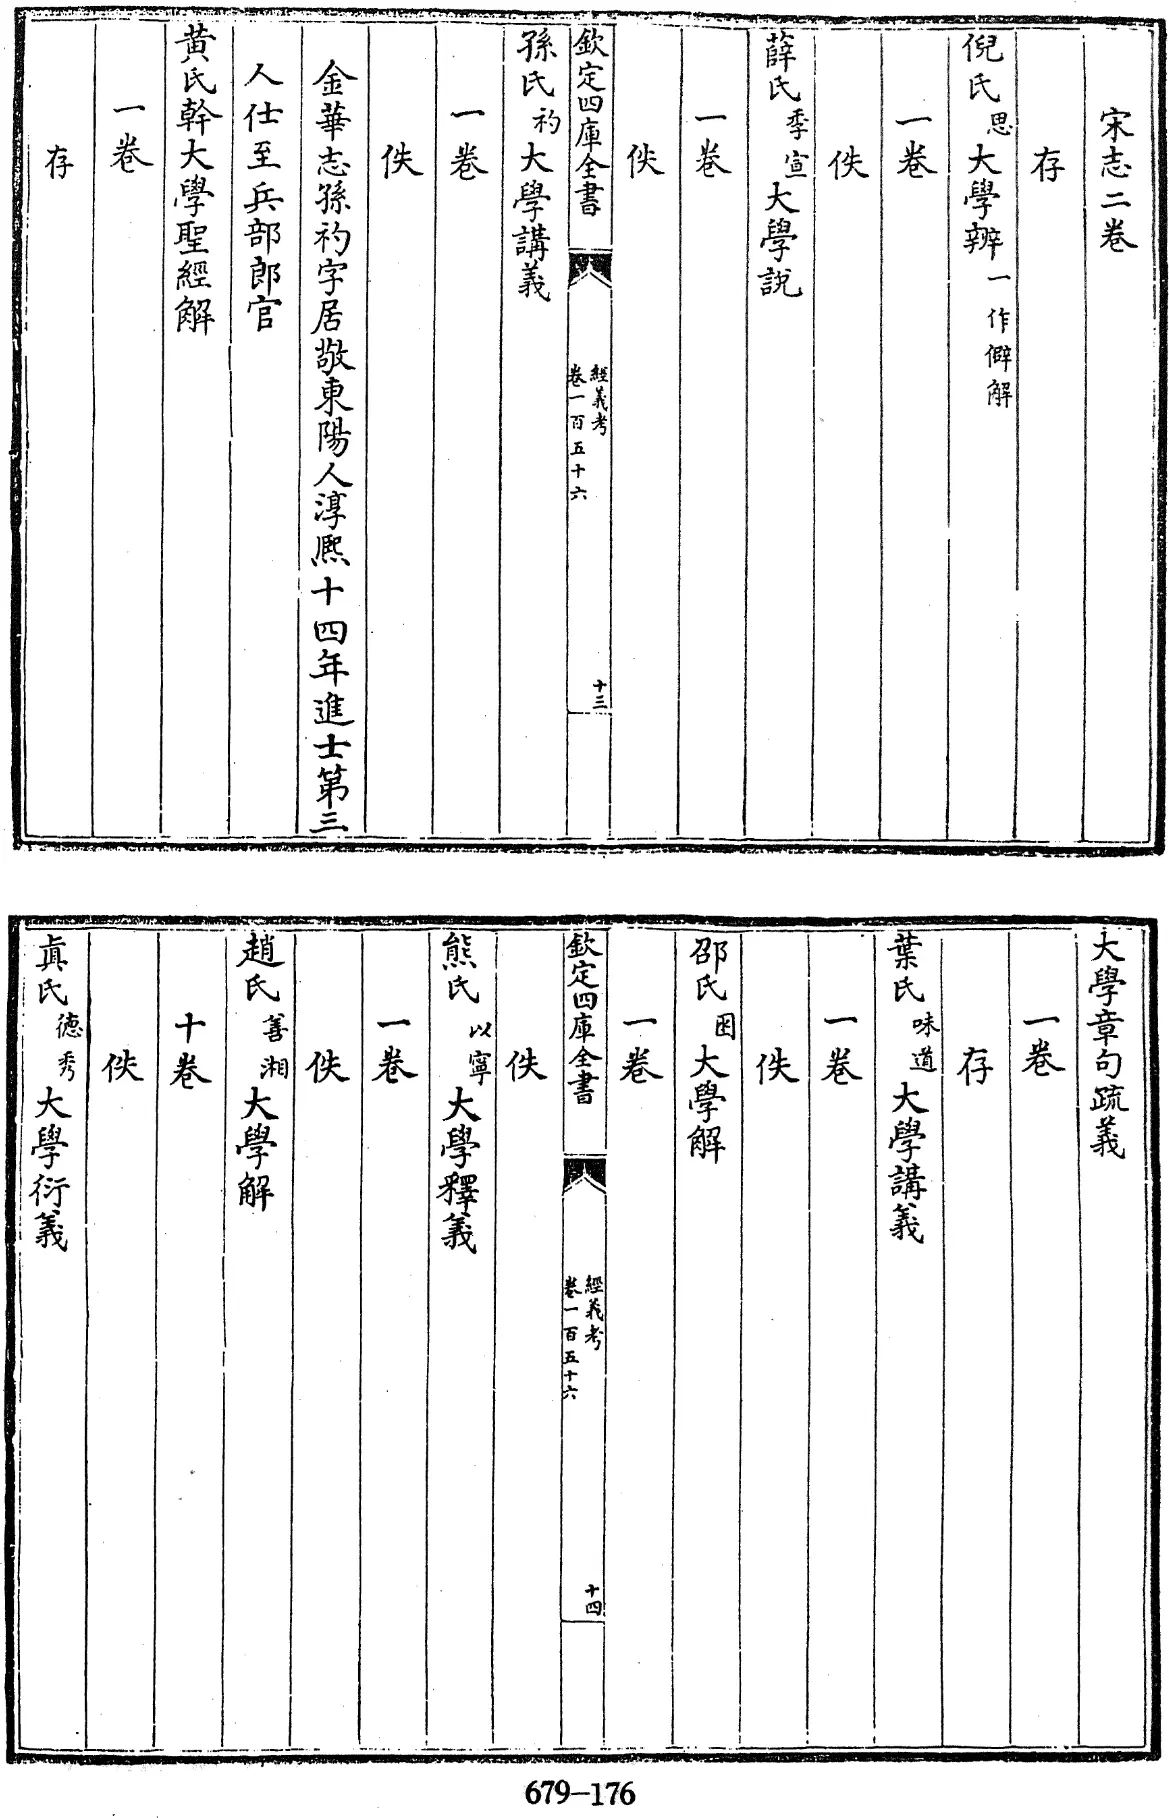 宋志二卷
存
倪氏思大學辨一作僻解
一卷
佚
薛氏季宣大學說
一卷
佚
欽定四庫全書
經義考
卷一百五十六
十三
孫氏礿大學講義
一卷
佚
金華志孫礿字居敬東陽人淳熙十四年進士第三
人仕至兵部郎官
黃氏幹大學聖經解
一卷
存
大學章句疏義
一卷
存
葉氏味道大學講義
一卷
佚
邵氏囦大學解
一卷
佚
欽定四庫全書
經義考
卷一百五十六
十四
熊氏以寧大學釋義
一卷
佚
趙氏善湘大學解
十卷
佚
真氏德秀大學衍義
679-176